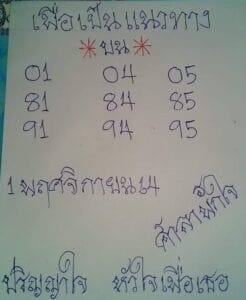 เพื่อเป็นแนวทาง
* บน *
01 04 05
81 84 85
91 94 95
1 พฤศจิกายน 14
ปริญญาใจ หัวใจเพื่อเธอ